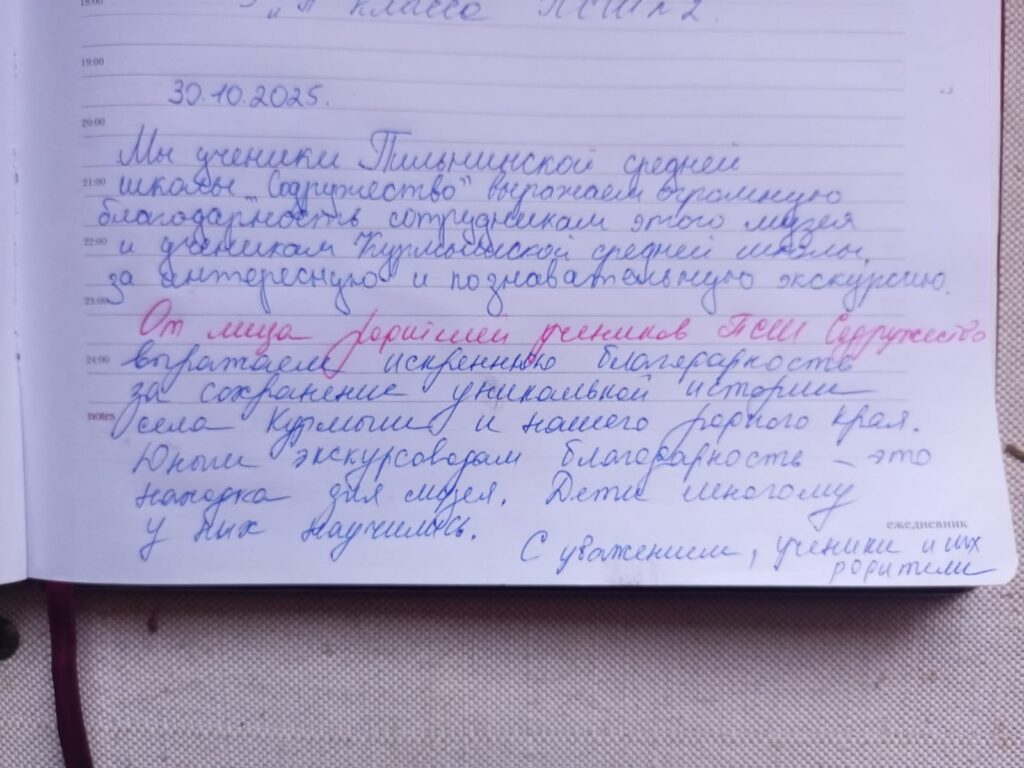 18:00
"А" класса ПСШ №2
19:00
30.10.2025.
20:00
Мы ученики Пильнинской средней
21:00
школы "Содружество" выражаем огромную
благодарность сотрудникам этого музея
22:00
и ученикам Курмышской средней школы,
за интересную и познавательную экскурсию.
23:00
От лица родителей учеников ПСШ Содружество
24:00
выражаем искреннюю благодарность
за сохранение уникальной истории
notes
села Курмыш и нашего родного края.
Юным экскурсоводам благодарность – это
находка для музея. Дети многому
у них научились.
ежедневник
С уважением, ученики и их
родители